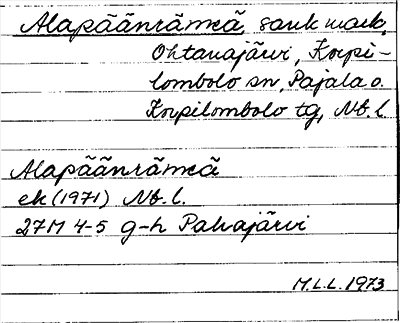 Alapäänrämeä, sank mark,
Ohtanajärvi, Korpi-
lombolo sn, Pajala o.
Korpilombolo tg, Nb.l.
Alapäänrämeä
ek (1971) Nb.l.
27M 4-5 g-h Palvajärvi
M.L.L. 1973